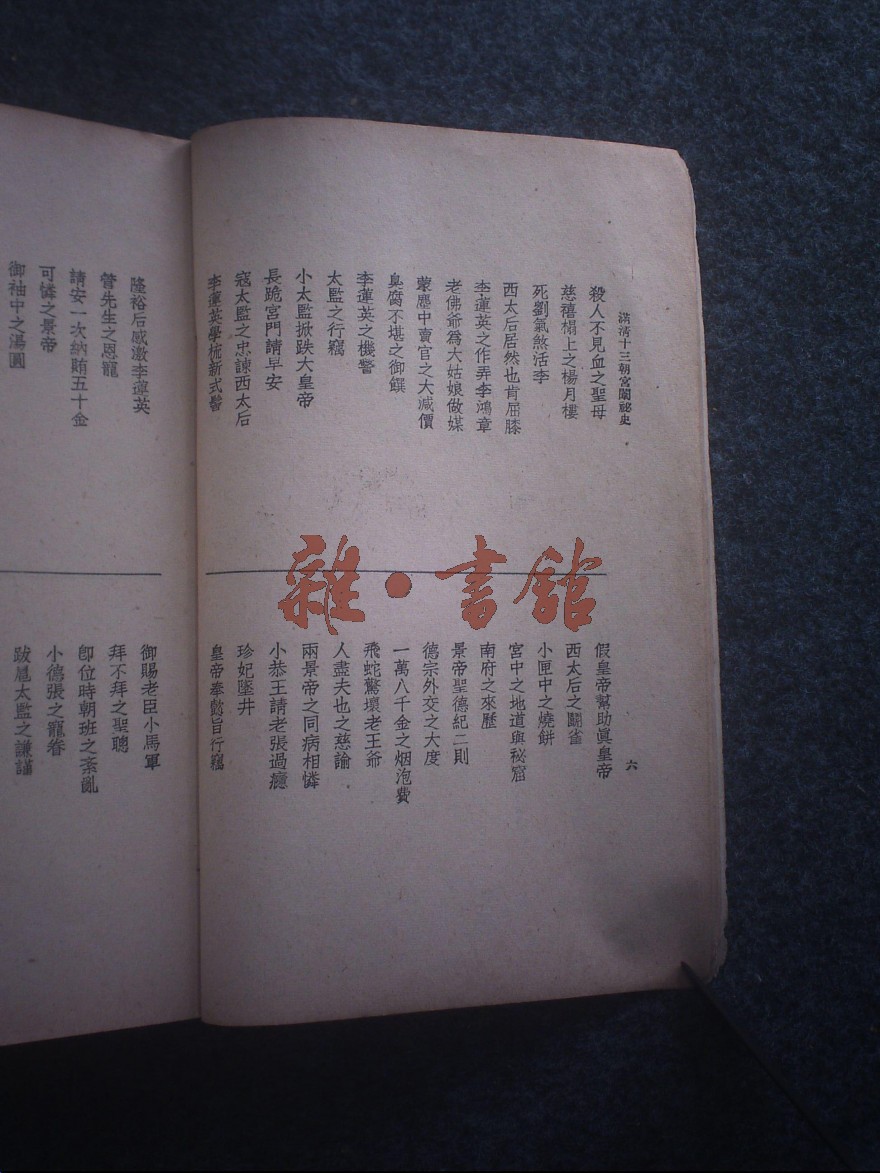 滿清十三朝宮闈祕史
六
殺人不見血之聖母
慈禧榻上之楊月樓
死劉氣煞活李
西太后居然也肯屈膝
李蓮英之作弄李鴻章
老佛爺爲大姑娘做媒
蒙塵中賣官之大減價
臭腐不堪之御饌
李蓮英之機警
太監之行竊
小太監掀跌大皇帝
長跪宮門請早安
寇太監之忠諫西太后
李蓮英學梳新式髻
假皇帝幫助眞皇帝
西太后之鬪雀
小匣中之燒餅
宮中之地道與秘窟
南府之來歷
景帝聖德紀二則
德宗外交之大度
一萬八千金之烟泡費
飛蛇驚壞老王爺
人盡夫也之慈諭
兩景帝之同病相憐
小恭王請老張過癮
珍妃墜井
皇帝奉懿旨行竊
隆裕后感激李蓮英
管先生之恩寵
請安一次納賄五十金
可憐之景帝
御袖中之湯圓
御賜老臣小馬軍
拜不拜之聖聰
卽位時朝班之紊亂
小德張之寵眷
跋扈太監之謙謹
雜·書館